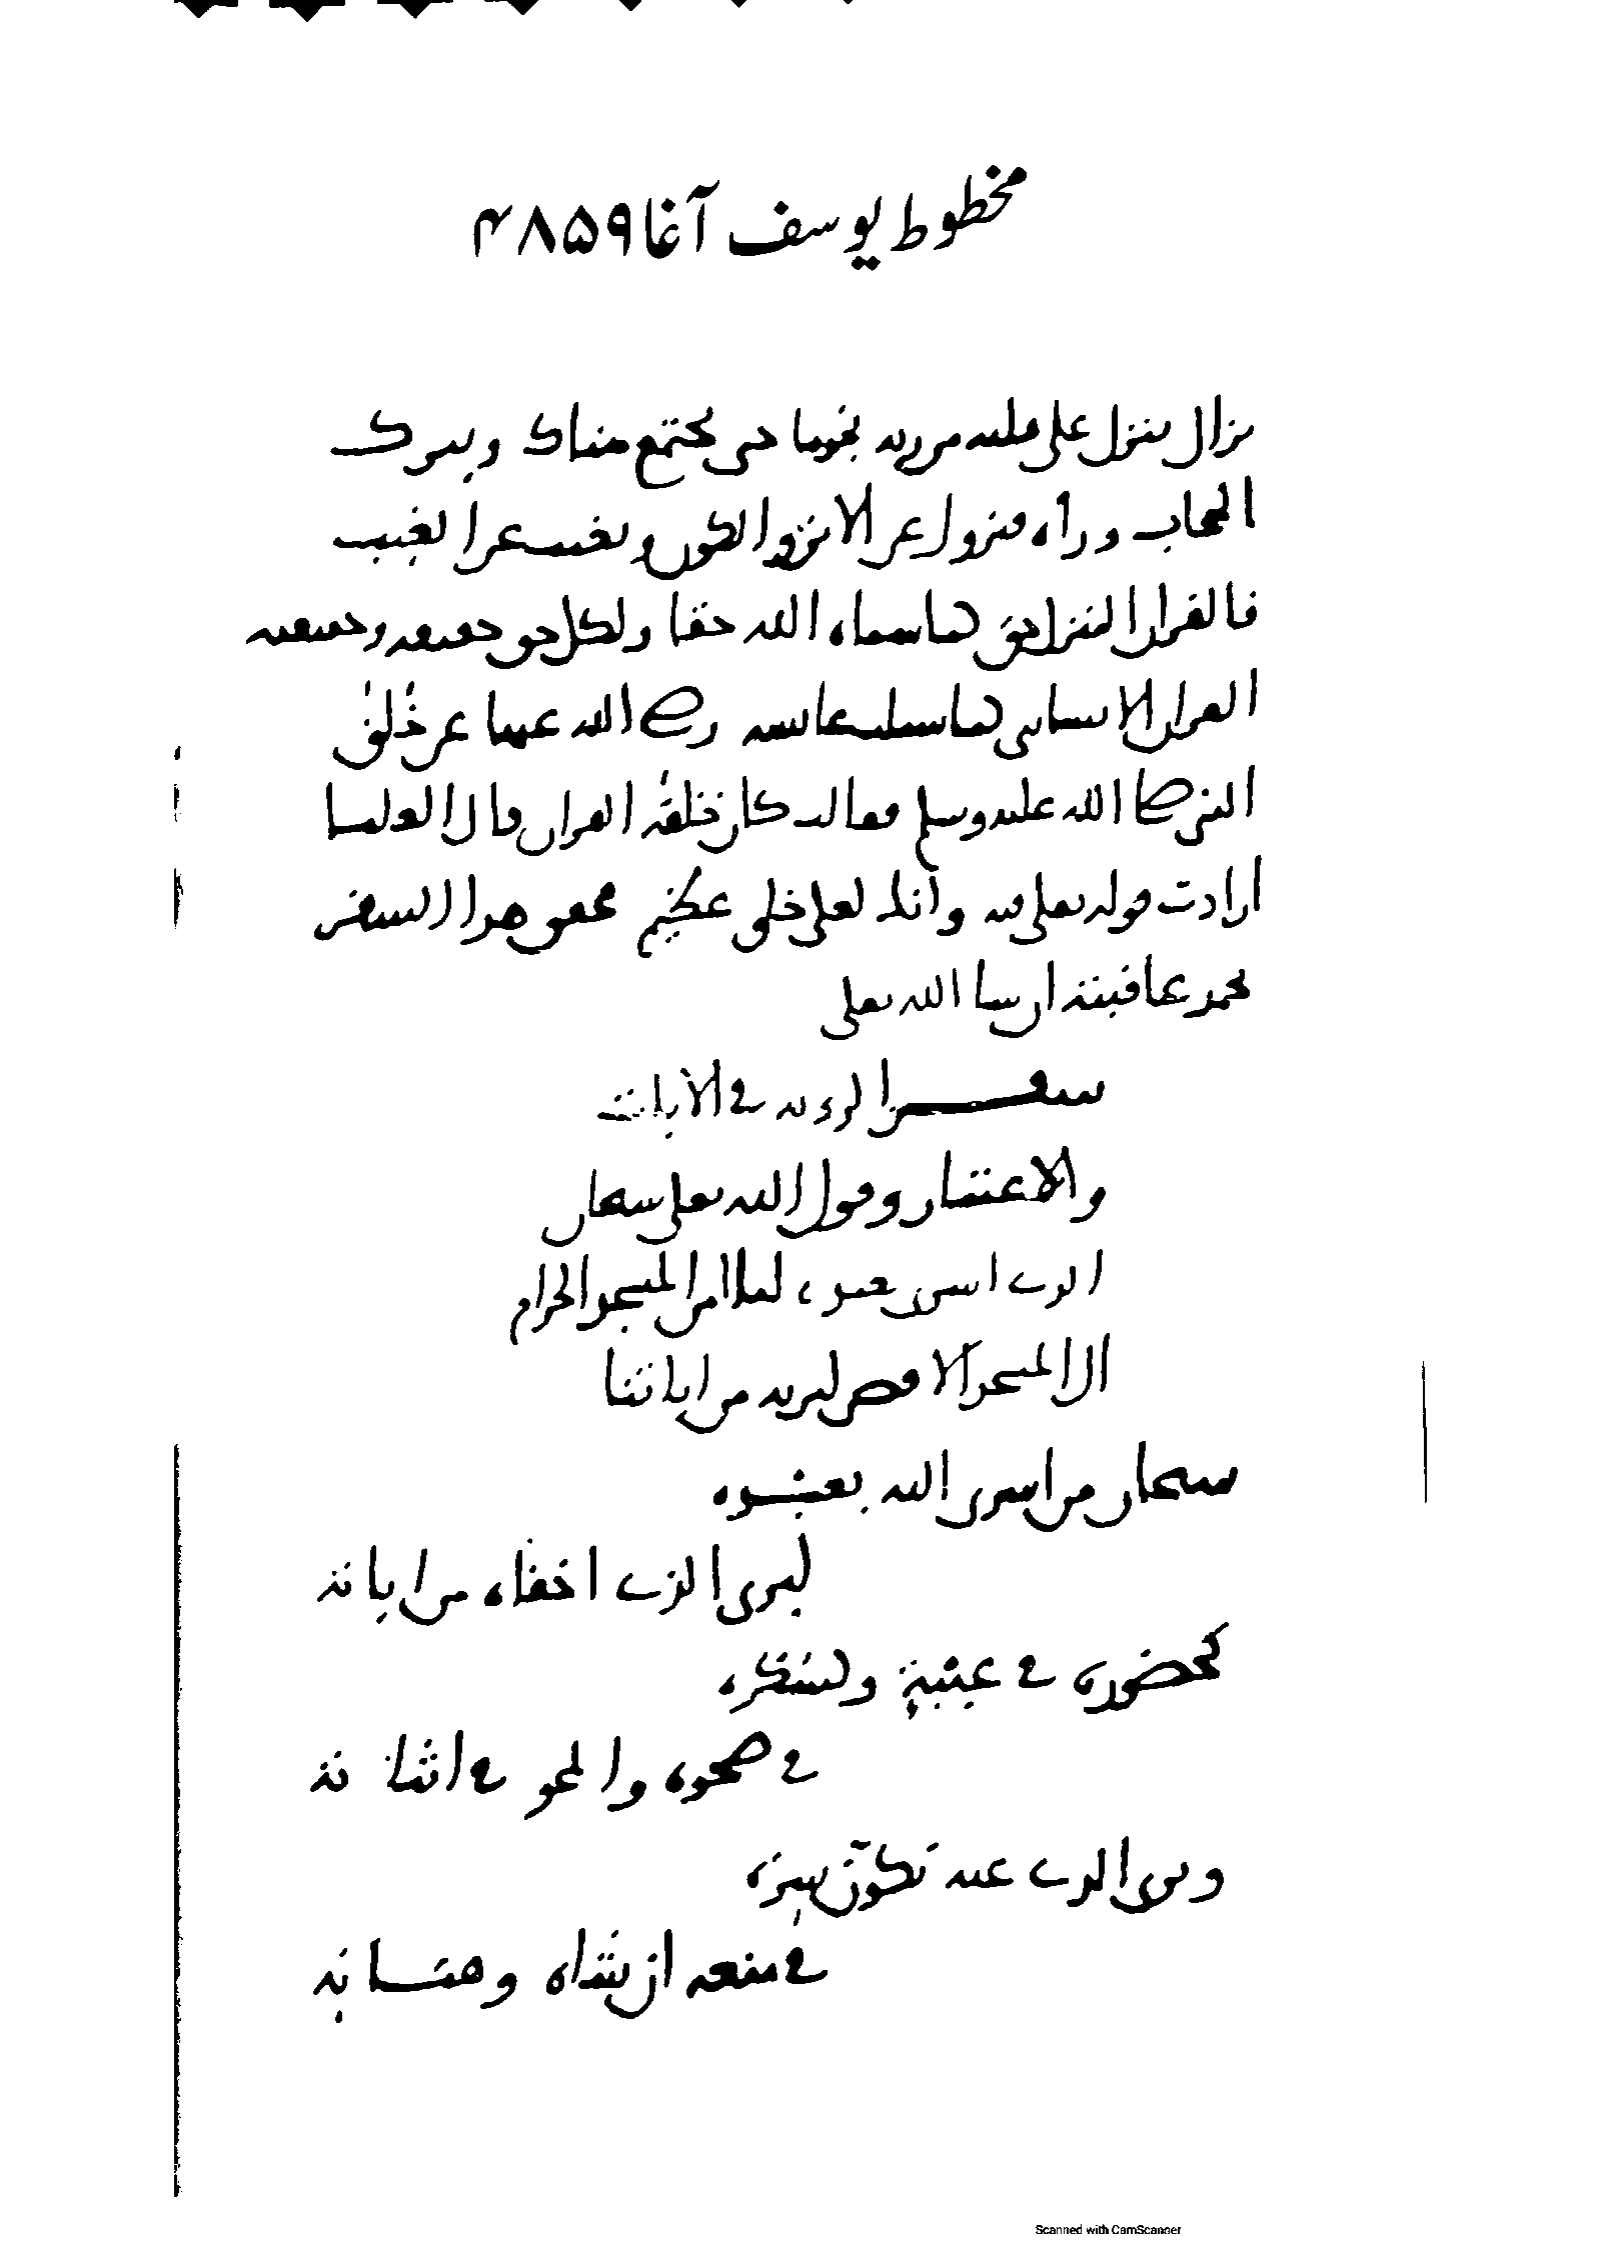 مخطوط يوسف آغا ۴۸۵۹
يزال ينزل على قلبه من ربه نجوما حتى يجتمع هناك ويترك
الحجاب وراءه فيزول عن الاين والكون ويغيب عن الغيب
فالقران المنزل حق كما سماه الله حقا ولكل حق حقيقة وحقيقة
القران الانسان كما سئلت عائشة رضي الله عنها عن خلق
النبي صلى الله عليه وسلم فقالت كان خلقه القران قال العلما
ارادت قوله تعلى فيه وانك لعلى خلق عظيم فحقق هذا السفر
تحمد عاقبته ان شا الله تعلى
سفر الرؤية في الايات
والاعتبار وقول الله تعلى سبحان
الذي اسرى بعبده ليلا من المسجد الحرام
الى المسجد الاقصى لنريه من اياتنا
سبحان من اسرى اليه بعبده
ليرى الذي اخفاه من اياته
كحضوره في غيبة وكسكره
في صحوه والمحو في اثباته
ويرى الذي عنه تكون سره
في منعه ان شاه وهباته
Scanned with CamScanner